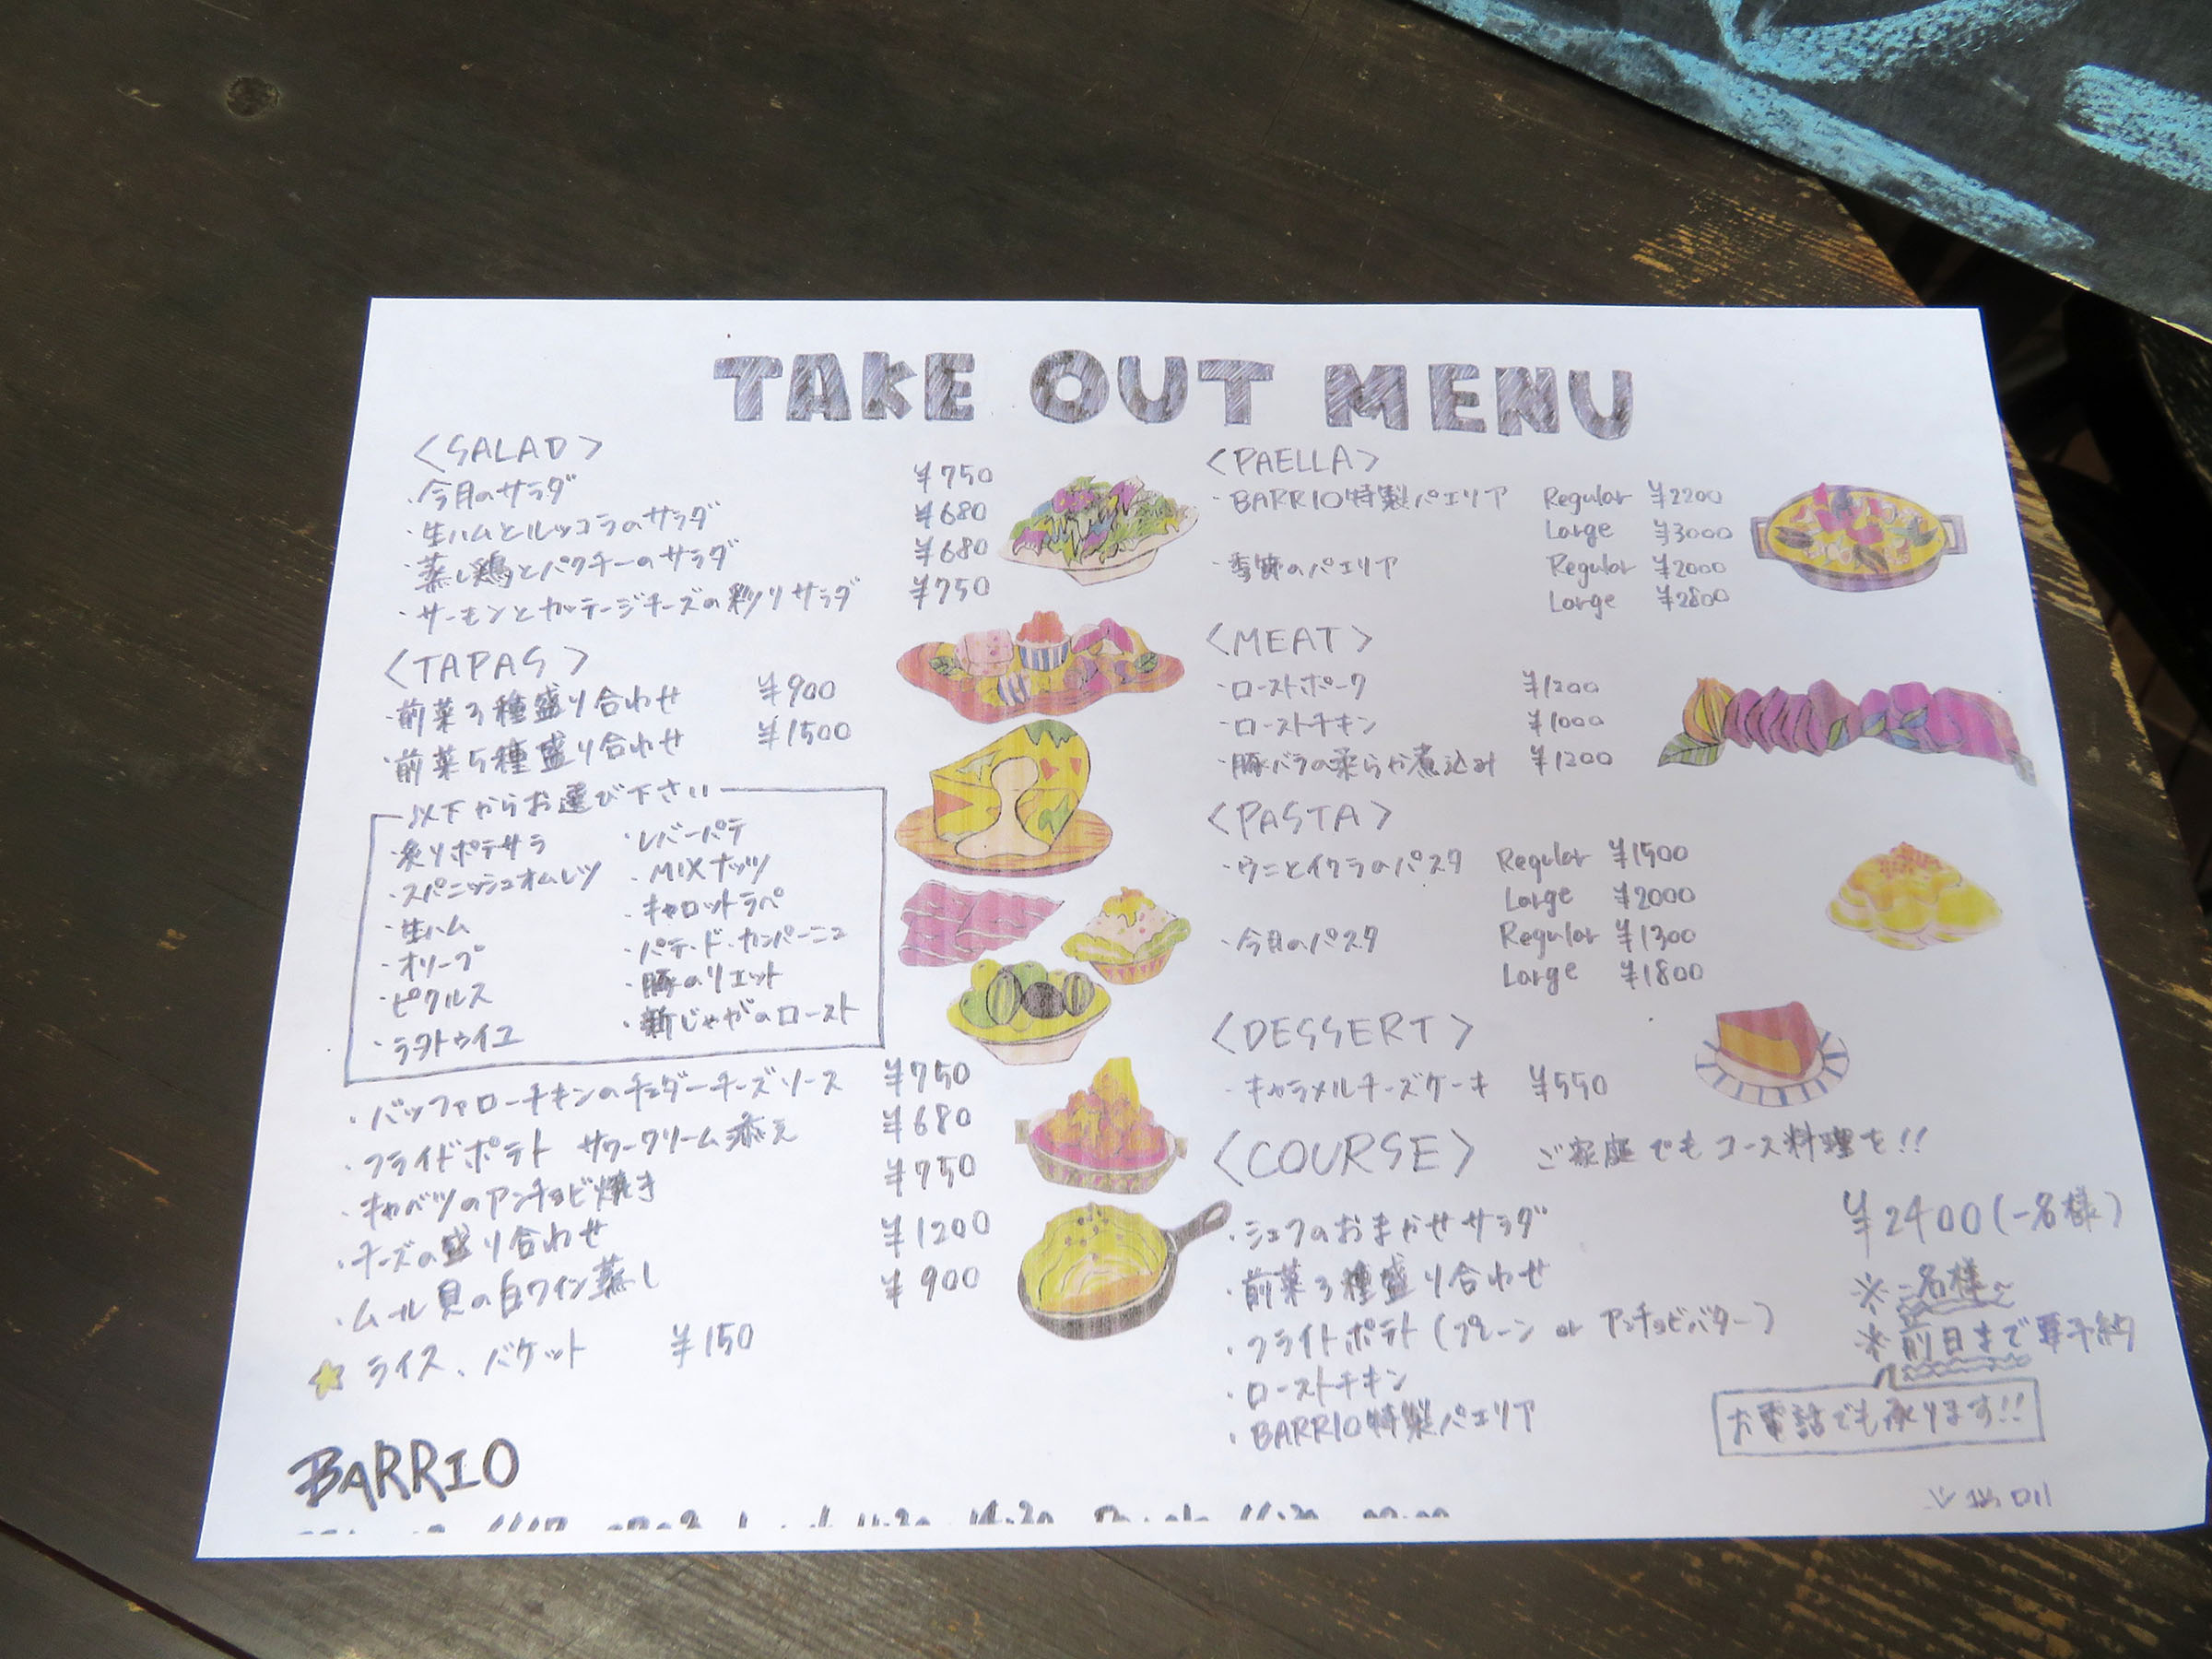 TAKE OUT MENU
<SALAD>
・今月のサラダ ¥750
・生ハムとルッコラのサラダ ¥680
・蒸し鶏とパクチーのサラダ ¥680
・サーモンとカッテージチーズの彩りサラダ ¥750
<TAPAS>
・前菜3種盛り合わせ ¥900
・前菜5種盛り合わせ ¥1500
以下からお選び下さい
・炙りポテサラ
・スパニッシュオムレツ
・生ハム
・オリーブ
・ピクルス
・ラタトゥイユ
・レバーパテ
・MIXナッツ
・キャロットラペ
・パテ・ド・カンパーニュ
・豚のリエット
・新じゃがのロースト
・バッファローチキンのチェダーチーズソース ¥750
・フライドポテト サワークリーム添え ¥680
・キャベツのアンチョビ焼き ¥750
・チーズの盛り合わせ ¥1200
・ムール貝の白ワイン蒸し ¥900
ライス、バケット ¥150
BARRIO
<PAELLA>
・BARRIO特製パエリア Regular ¥2200
Large ¥3000
・季節のパエリア Regular ¥2000
Large ¥2800
<MEAT>
・ローストポーク ¥1200
・ローストチキン ¥1000
・豚バラの柔らか煮込み ¥1200
<PASTA>
・ウニとイクラのパスタ Regular ¥1500
Large ¥2000
・今月のパスタ Regular ¥1300
Large ¥1800
<DESSERT>
・キャラメルチーズケーキ ¥550
<COURSE> ご家庭でもコース料理を!!
・シェフのおまかせサラダ
・前菜3種盛り合わせ
・フライドポテト(プレーン or アンチョビバター)
・ローストチキン
・BARRIO特製パエリア
¥2400(一名様)
※二名様~
※前日まで要予約
お電話でも承ります!!